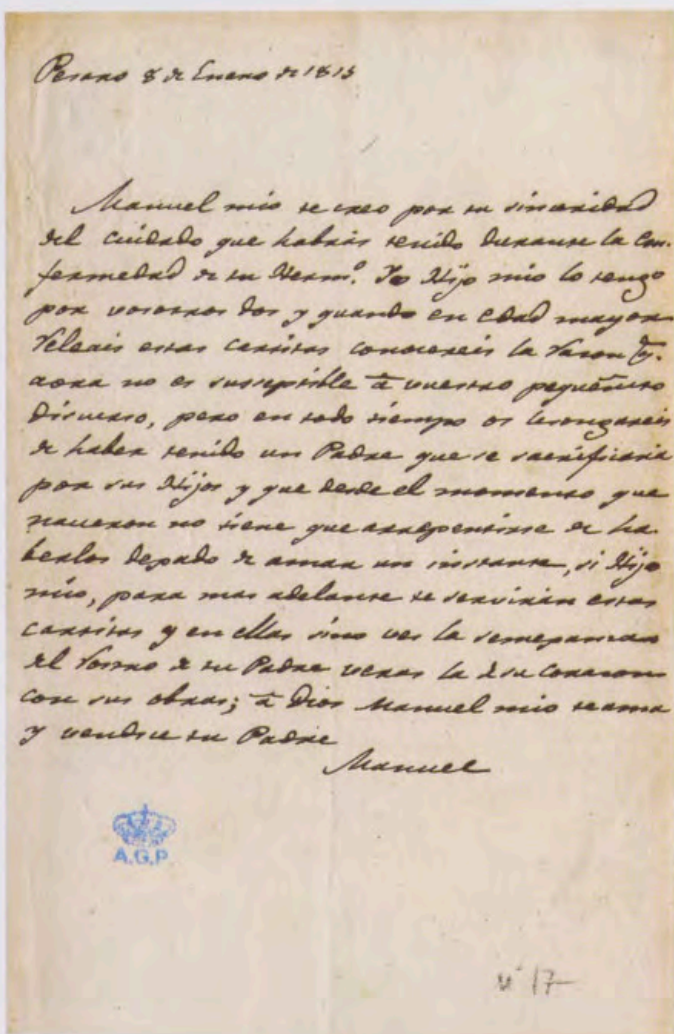 Pesaro 8 de Enero de 1815
Manuel mio te creo por tu sinceridad
del cuidado que habrás tenido durante la en-
fermedad de tu Herm.º Yo Hijo mio lo tengo
por vosotros dos y quando en edad mayor
releais estas cartitas conocereis la razon q.
aora no es suseptible à vuestro pequeñito
discurso, pero en todo tiempo os
de haber tenido un Padre que se sacrificaria
por sus Hijos y que desde el momento que
nacieron no tiene que arrepentirse de ha-
berlos dejado de amar un instante, si Hijo
mio, para mas adelante te servirán estas
cartitas y en ellas sino ves la semejanza
del rostro de tu Padre veras la de su corazon
con sus obras; à Dios Manuel mio te ama
y vendice tu Padre
Manuel
A.G.P.
Nº 17